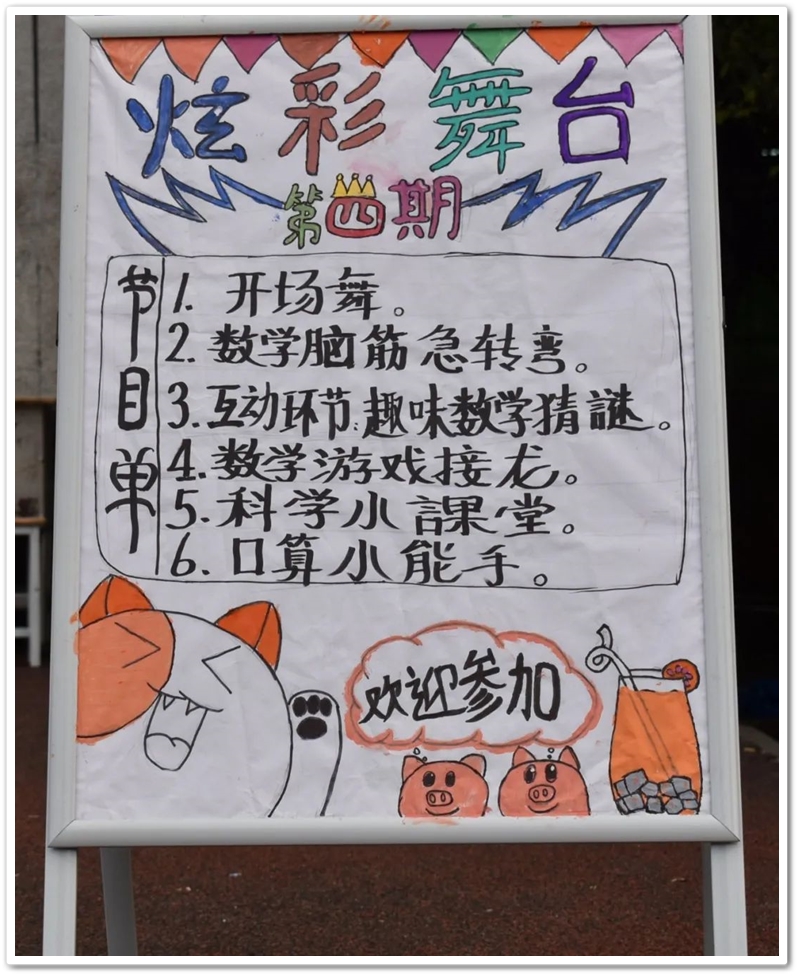 炫彩舞台
第四期
节目单
1. 开场舞。
2. 数学脑筋急转弯。
3. 互动环节:趣味数学猜謎。
4. 数学游戏接龙。
5. 科学小課堂。
6. 口算小能手。
欢迎参加